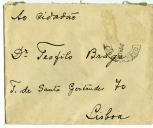 Ao cidadão
Dr. Teofilo Braga
T. de Santa Gertrudes 70
Lisboa